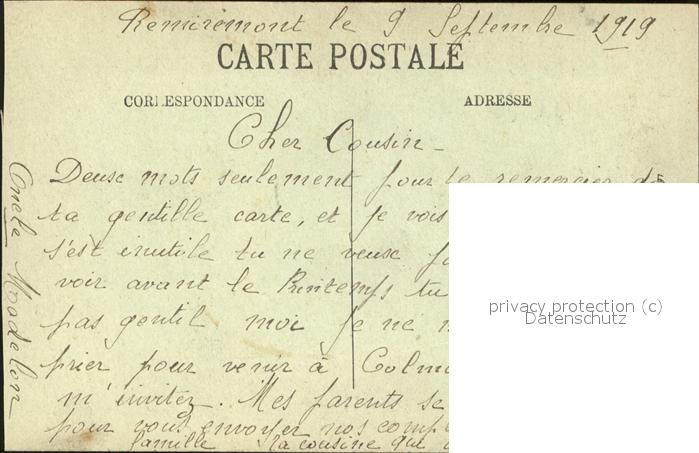 Remiremont le 9 Septembre 1919
CARTE POSTALE
CORRESPONDANCE
ADRESSE
Cher Cousin -
Deux mots seulement pour te remercier de
ta gentille carte, et je vois
s'est inutile tu ne veux
voir avant le Printemps tu
pas gentil moi je ne
prier pour venir à Colm
m'invitez. Mes parents se
pour vous envoyer nos comp
famille ta cousine qui
privacy protection (c)
Datenschutz
Madelon